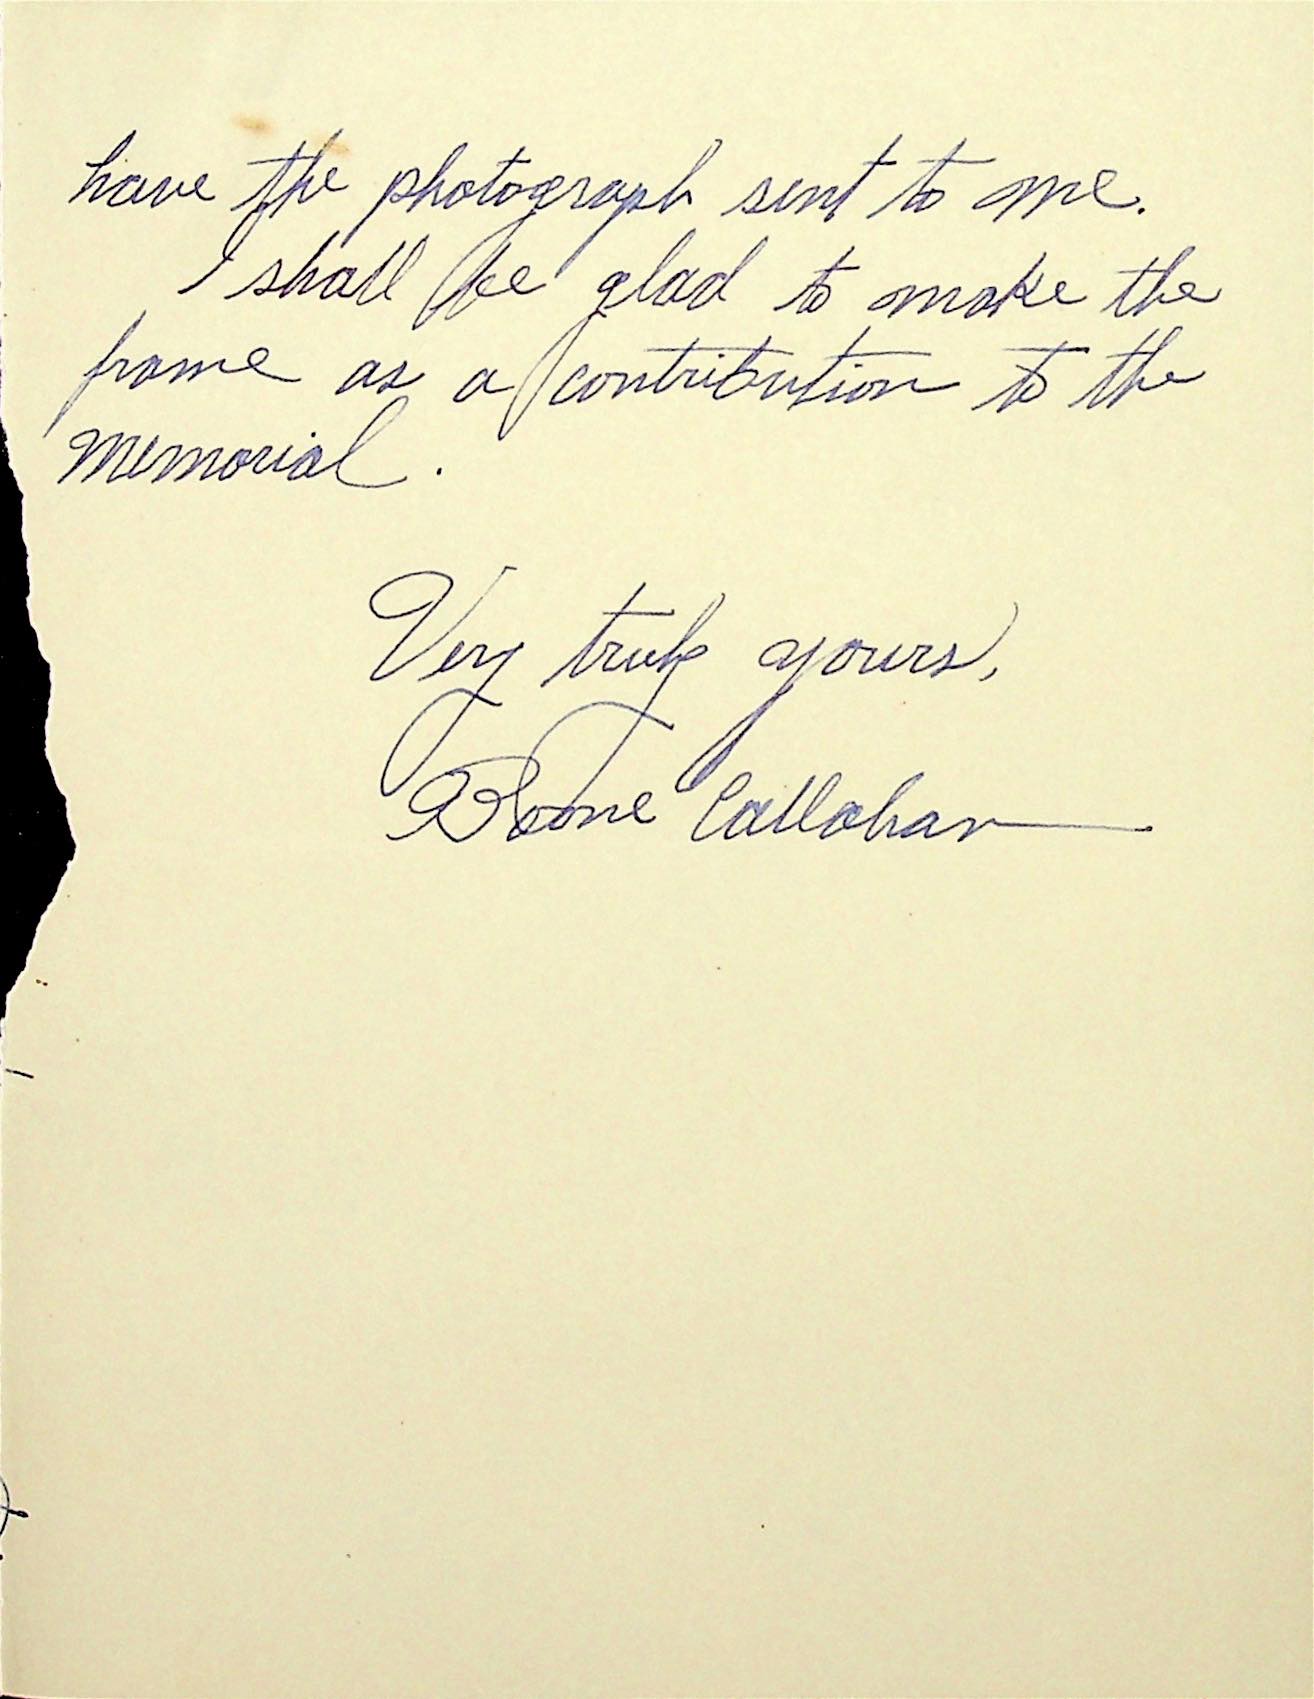 have the photograph sent to me.
I shall be glad to make the
frame as a contribution to the
memorial.
Very truly yours,
Boone Callahan